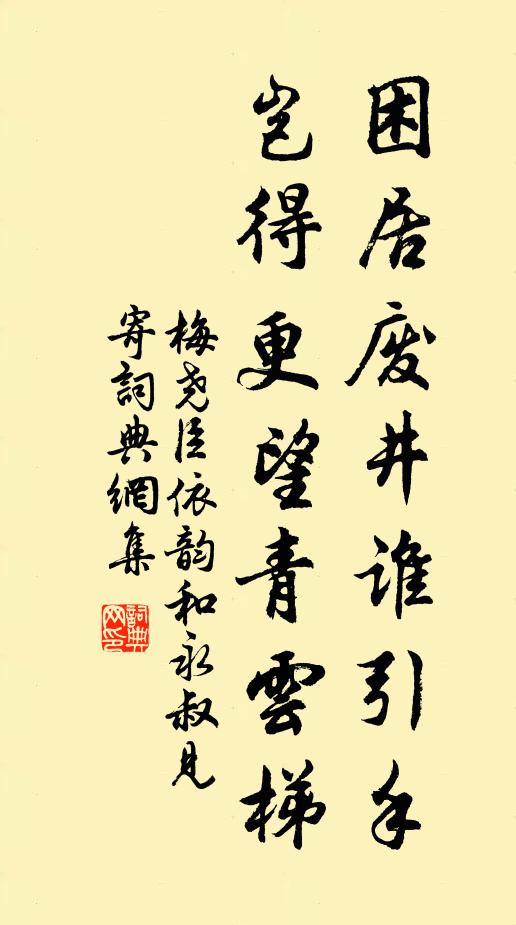 困居废井谁引手
岂得更望青雲梯
梅尧臣依韵和永叔見
寄詞典網集
詞典
网印